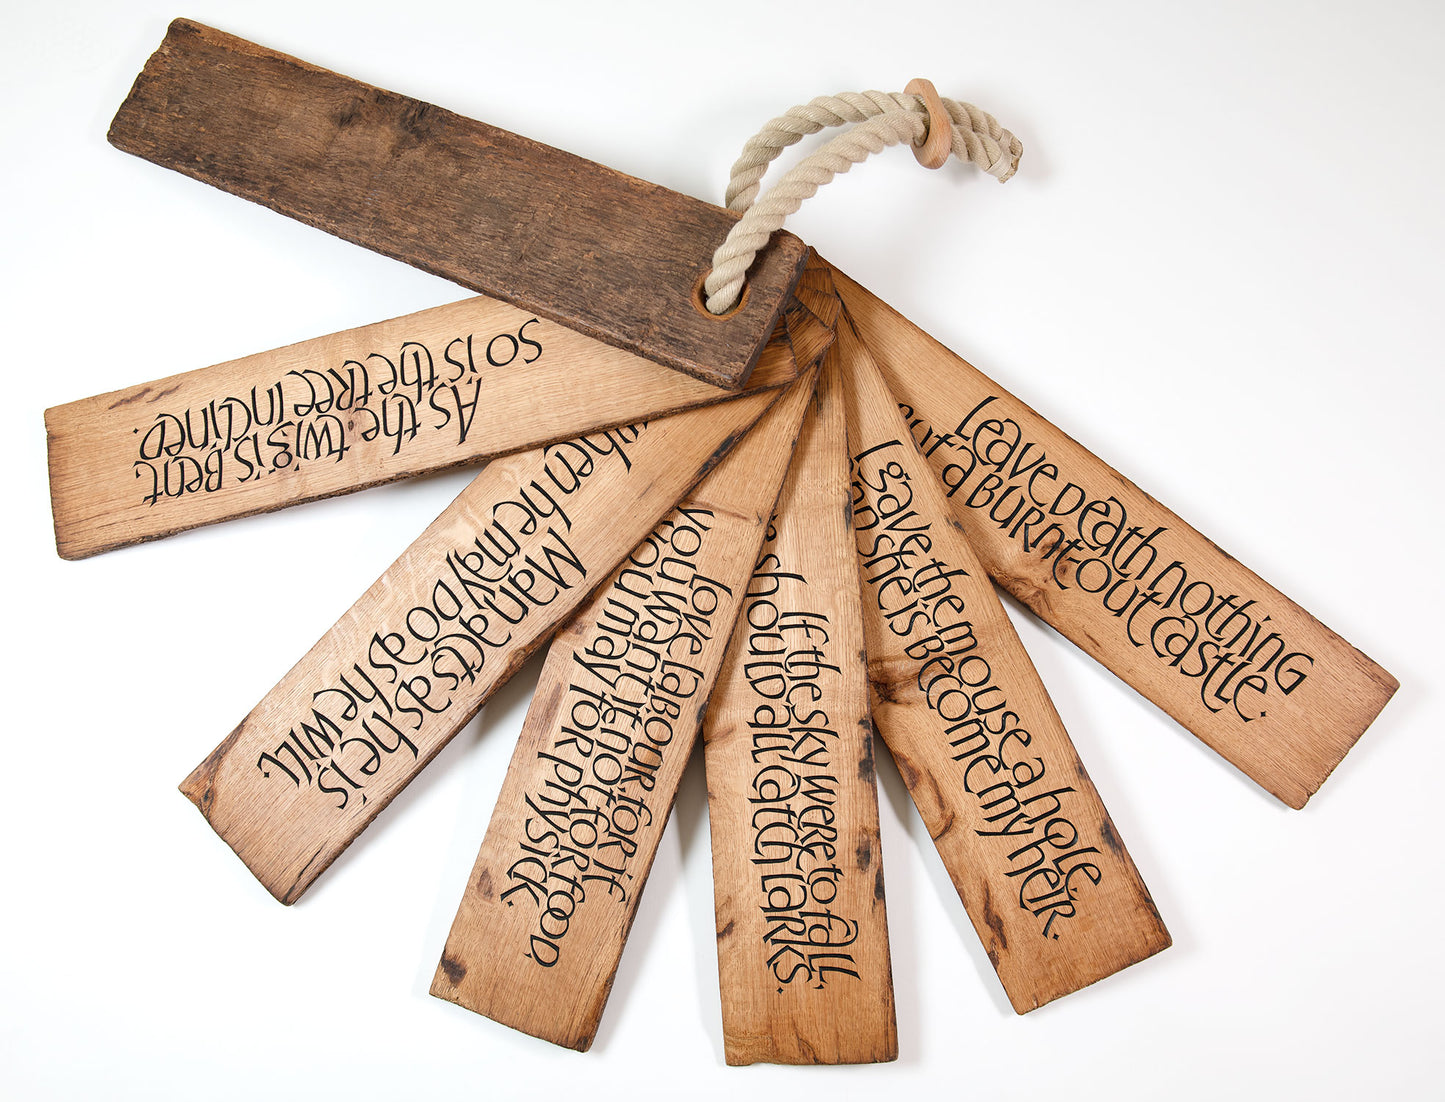 As the twig is Bent,
so is the tree inclined.
Man acts as he is
when he may do as he will.
Love labour for if
you want it not for food
you may for physick.
If the sky were to fall,
we should all catch larks.
I gave the mouse a hole,
and she is become my heir.
Leave Death nothing
but a burnt-out castle.